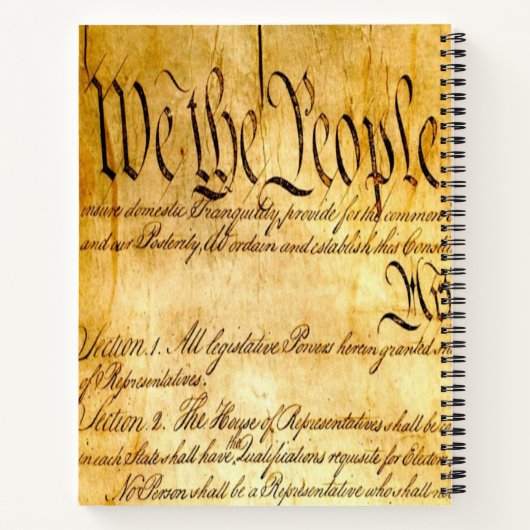 We the People
insure domestic Tranquility, provide for the common
and our Posterity, do ordain and establish this Constit
Section. 1. All legislative Powers herein granted sha
of Representatives.
Section. 2. The House of Representatives shall be co
in each State shall have the Qualifications requisite for Elector
No Person shall be a Representative who shall no